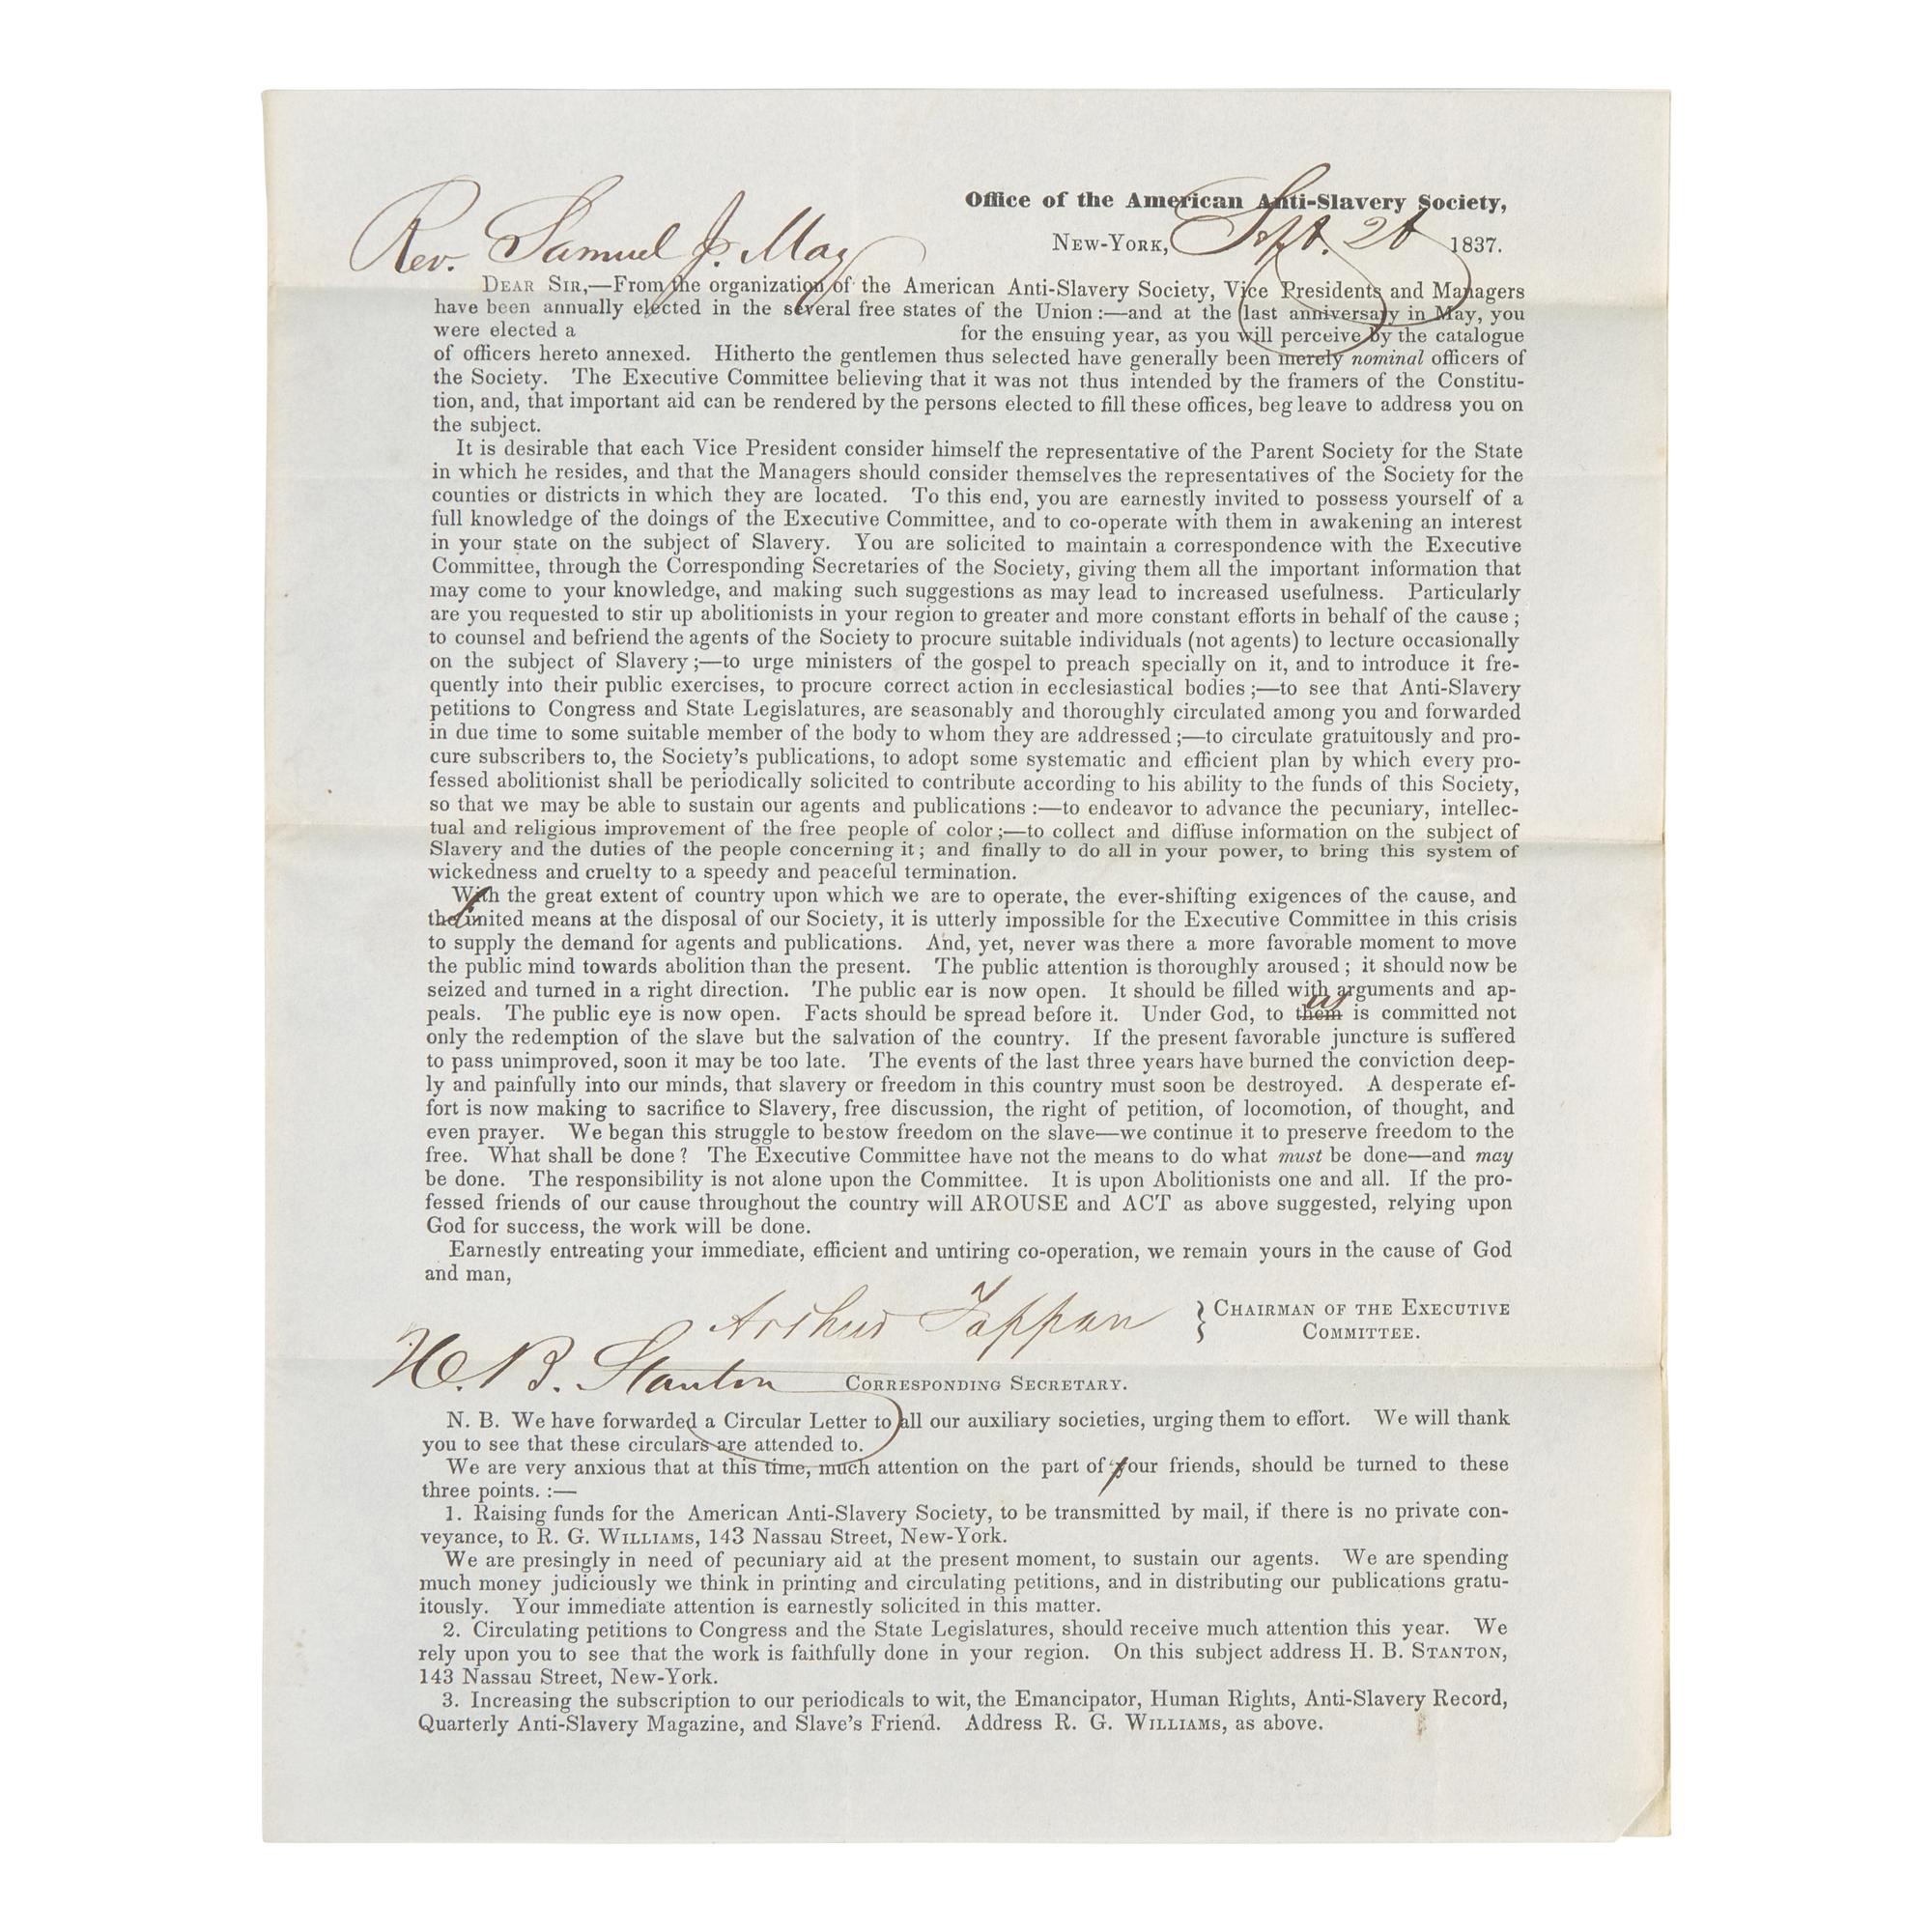 Office of the American Anti-Slavery Society,
Rev. Samuel J. May
NEW-YORK, Sept. 1837.
DEAR SIR,—From the organization of the American Anti-Slavery Society, Vice Presidents and Managers
have been annually elected in the several free states of the Union :—and at the last anniversary in May, you
were elected a for the ensuing year, as you will perceive by the catalogue
of officers hereto annexed. Hitherto the gentlemen thus selected have generally been merely nominal officers of
the Society. The Executive Committee believing that it was not thus intended by the framers of the Constitu-
tion, and, that important aid can be rendered by the persons elected to fill these offices, beg leave to address you on
the subject.
It is desirable that each Vice President consider himself the representative of the Parent Society for the State
in which he resides, and that the Managers should consider themselves the representatives of the Society for the
counties or districts in which they are located. To this end, you are earnestly invited to possess yourself of a
full knowledge of the doings of the Executive Committee, and to co-operate with them in awakening an interest
in your state on the subject of Slavery. You are solicited to maintain a correspondence with the Executive
Committee, through the Corresponding Secretaries of the Society, giving them all the important information that
may come to your knowledge, and making such suggestions as may lead to increased usefulness. Particularly
are you requested to stir up abolitionists in your region to greater and more constant efforts in behalf of the cause ;
to counsel and befriend the agents of the Society to procure suitable individuals (not agents) to lecture occasionally
on the subject of Slavery ;—to urge ministers of the gospel to preach specially on it, and to introduce it fre-
quently into their public exercises, to procure correct action in ecclesiastical bodies ;—to see that Anti-Slavery
petitions to Congress and State Legislatures, are seasonably and thoroughly circulated among you and forwarded
in due time to some suitable member of the body to whom they are addressed ;—to circulate gratuitously and pro-
cure subscribers to, the Society's publications, to adopt some systematic and efficient plan by which every pro-
fessed abolitionist shall be periodically solicited to contribute according to his ability to the funds of this Society,
so that we may be able to sustain our agents and publications :—to endeavor to advance the pecuniary, intellec-
tual and religious improvement of the free people of color ;—to collect and diffuse information on the subject of
Slavery and the duties of the people concerning it ; and finally to do all in your power, to bring this system of
wickedness and cruelty to a speedy and peaceful termination.
With the great extent of country upon which we are to operate, the ever-shifting exigences of the cause, and
the limited means at the disposal of our Society, it is utterly impossible for the Executive Committee in this crisis
to supply the demand for agents and publications. And, yet, never was there a more favorable moment to move
the public mind towards abolition than the present. The public attention is thoroughly aroused ; it should now be
seized and turned in a right direction. The public ear is now open. It should be filled with arguments and ap-
peals. The public eye is now open. Facts should be spread before it. Under God, to them us is committed not
only the redemption of the slave but the salvation of the country. If the present favorable juncture is suffered
to pass unimproved, soon it may be too late. The events of the last three years have burned the conviction deep-
ly and painfully into our minds, that slavery or freedom in this country must soon be destroyed. A desperate ef-
fort is now making to sacrifice to Slavery, free discussion, the right of petition, of locomotion, of thought, and
even prayer. We began this struggle to bestow freedom on the slave—we continue it to preserve freedom to the
free. What shall be done ? The Executive Committee have not the means to do what must be done—and may
be done. The responsibility is not alone upon the Committee. It is upon Abolitionists one and all. If the pro-
fessed friends of our cause throughout the country will AROUSE and ACT as above suggested, relying upon
God for success, the work will be done.
Earnestly entreating your immediate, efficient and untiring co-operation, we remain yours in the cause of God
and man,
Arthur Tappan } CHAIRMAN OF THE EXECUTIVE
COMMITTEE.
H. B. Stanton CORRESPONDING SECRETARY.
N. B. We have forwarded a Circular Letter to all our auxiliary societies, urging them to effort. We will thank
you to see that these circulars are attended to.
We are very anxious that at this time, much attention on the part of your friends, should be turned to these
three points. :—
1. Raising funds for the American Anti-Slavery Society, to be transmitted by mail, if there is no private con-
veyance, to R. G. WILLIAMS, 143 Nassau Street, New-York.
We are presingly in need of pecuniary aid at the present moment, to sustain our agents. We are spending
much money judiciously we think in printing and circulating petitions, and in distributing our publications gratu-
itously. Your immediate attention is earnestly solicited in this matter.
2. Circulating petitions to Congress and the State Legislatures, should receive much attention this year. We
rely upon you to see that the work is faithfully done in your region. On this subject address H. B. STANTON,
143 Nassau Street, New-York.
3. Increasing the subscription to our periodicals to wit, the Emancipator, Human Rights, Anti-Slavery Record,
Quarterly Anti-Slavery Magazine, and Slave's Friend. Address R. G. WILLIAMS, as above.